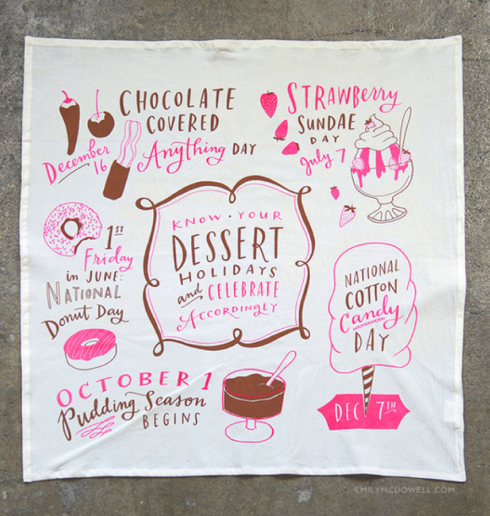 CHOCOLATE
COVERED
Anything DAY
December
16
STRAWBERRY
SUNDAE
DAY
July 7
1ST
Friday
in JUNE:
NATIONAL
Donut Day
KNOW • YOUR
DESSERT
HOLIDAYS
and CELEBRATE
ACCORDINGLY
NATIONAL
COTTON
Candy
DAY
DEC 7TH
OCTOBER 1
Pudding Season
BEGINS
EMILYMCDOWELL.COM